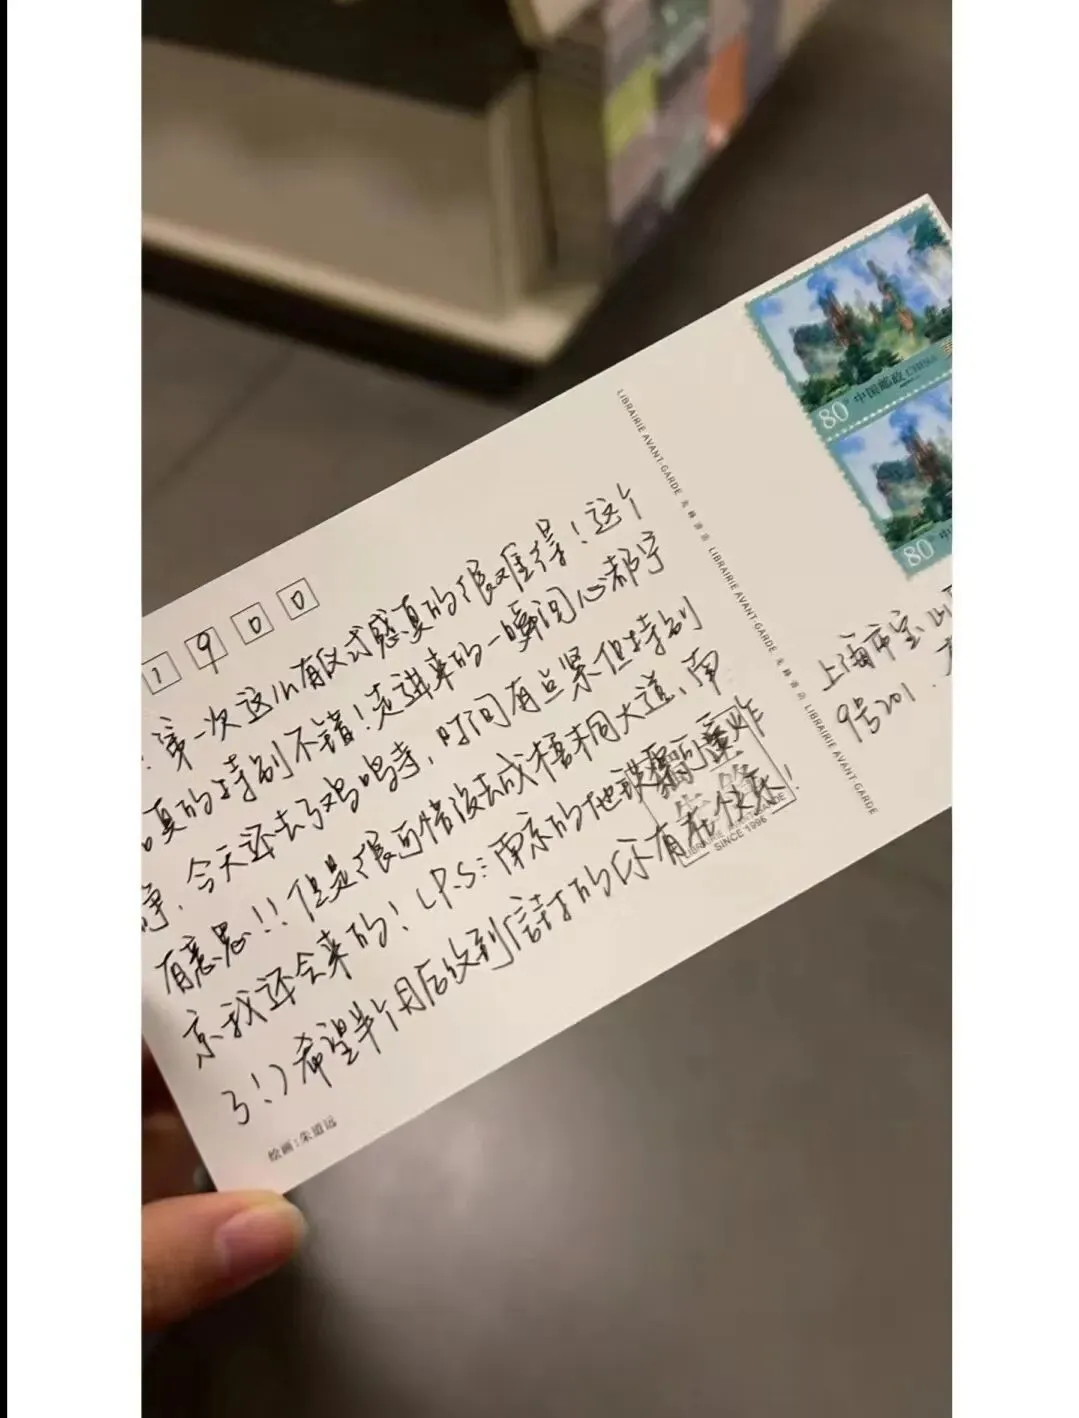 1900
！第一次这么有仪式感真的很难得！这个
真的特别不错！走进来的一瞬间心都宁
静．今天还去了鸡鸣寺，时间有点紧但特别
有意思!!但是很可惜没去成梧桐大道、南
京我还会来的！（P.S：南京的地
了!）希望半个月后收到信封的你有在快乐！
绘画：朱道远
LIBRAIRIE AVANT-GARDE 先锋书店 LIBRAIRIE AVANT-GARDE 先锋书店 LIBRAIRIE AVANT-GARDE
先锋
LIBRAIRIE AVANT-GARDE
SINCE 1996
80分 中国邮政 CHINA
80分 中
上海市宝山
9号201．